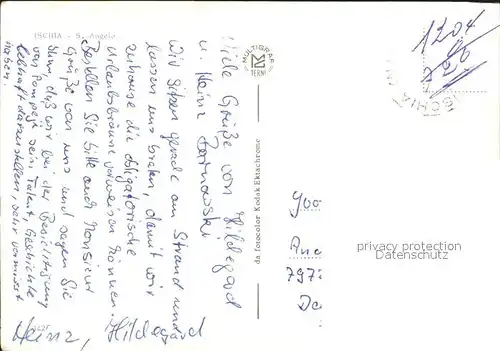 ISCHIA - S. Angelo
Viele Grüße von Hildegard
u. Heinz
Wir sitzen gerade am Strand und
lassen uns braten, damit wir
zuhause die obligatorische
Urlaubsbräune vorweisen können.
Bestellen Sie bitte auch Monsieur
Grüße von uns und sagen Sie
ihm, daß wir bei der Besichtigung
von Pompeji sein Talent, Geschichte
lebhaft darzustellen, sehr vermisst
haben.
Heinz, Hildegard
MULTIGRAF
TERNI
da fotocolor Kodak Ektachrome
1204
ISCHIA
797
privacy protection
Datenschutz